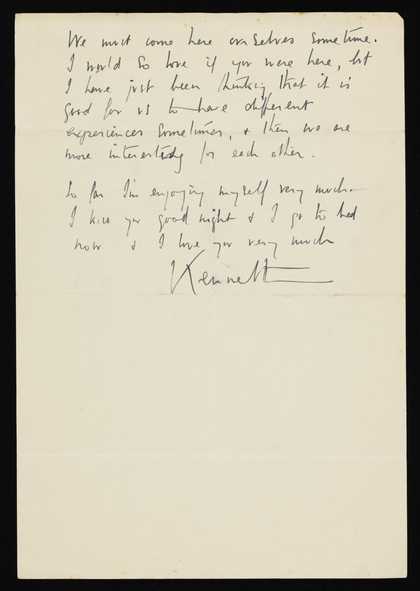 We must come here ourselves sometime.
I would so love if you were here, but
I have just been thinking that it is
good for us to have different
experiences sometimes, & then we are
more interesting for each other.
So far I'm enjoying myself very much
I kiss you good night & I go to bed
now & I love you very much
Kenneth